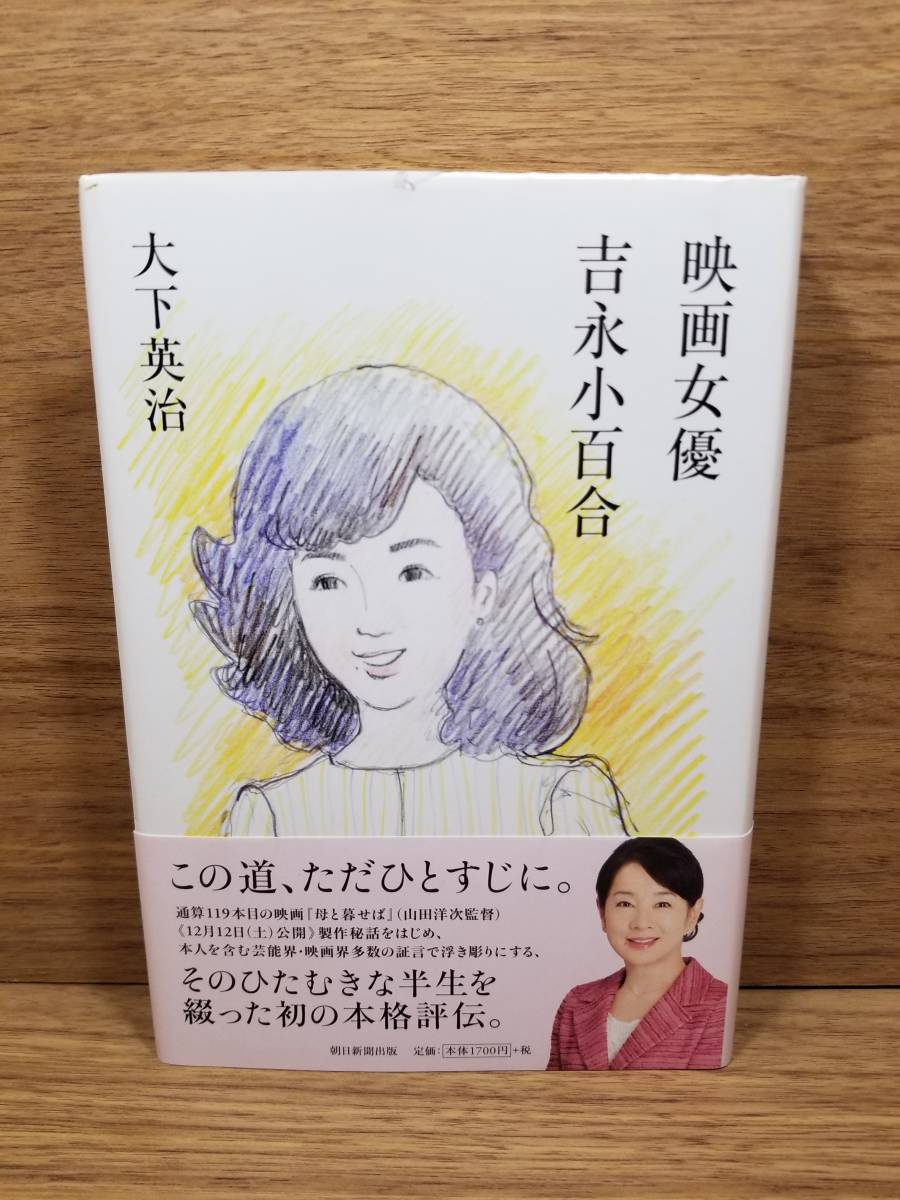 映画女優
吉永小百合
大下英治
この道、ただひとすじに。
通算119本目の映画『母と暮せば』(山田洋次監督)
《12月12日(土)公開》製作秘話をはじめ、
本人を含む芸能界・映画界多数の証言で浮き彫りにする、
そのひたむきな半生を
綴った初の本格評伝。
朝日新聞出版 定価:本体1700円+税